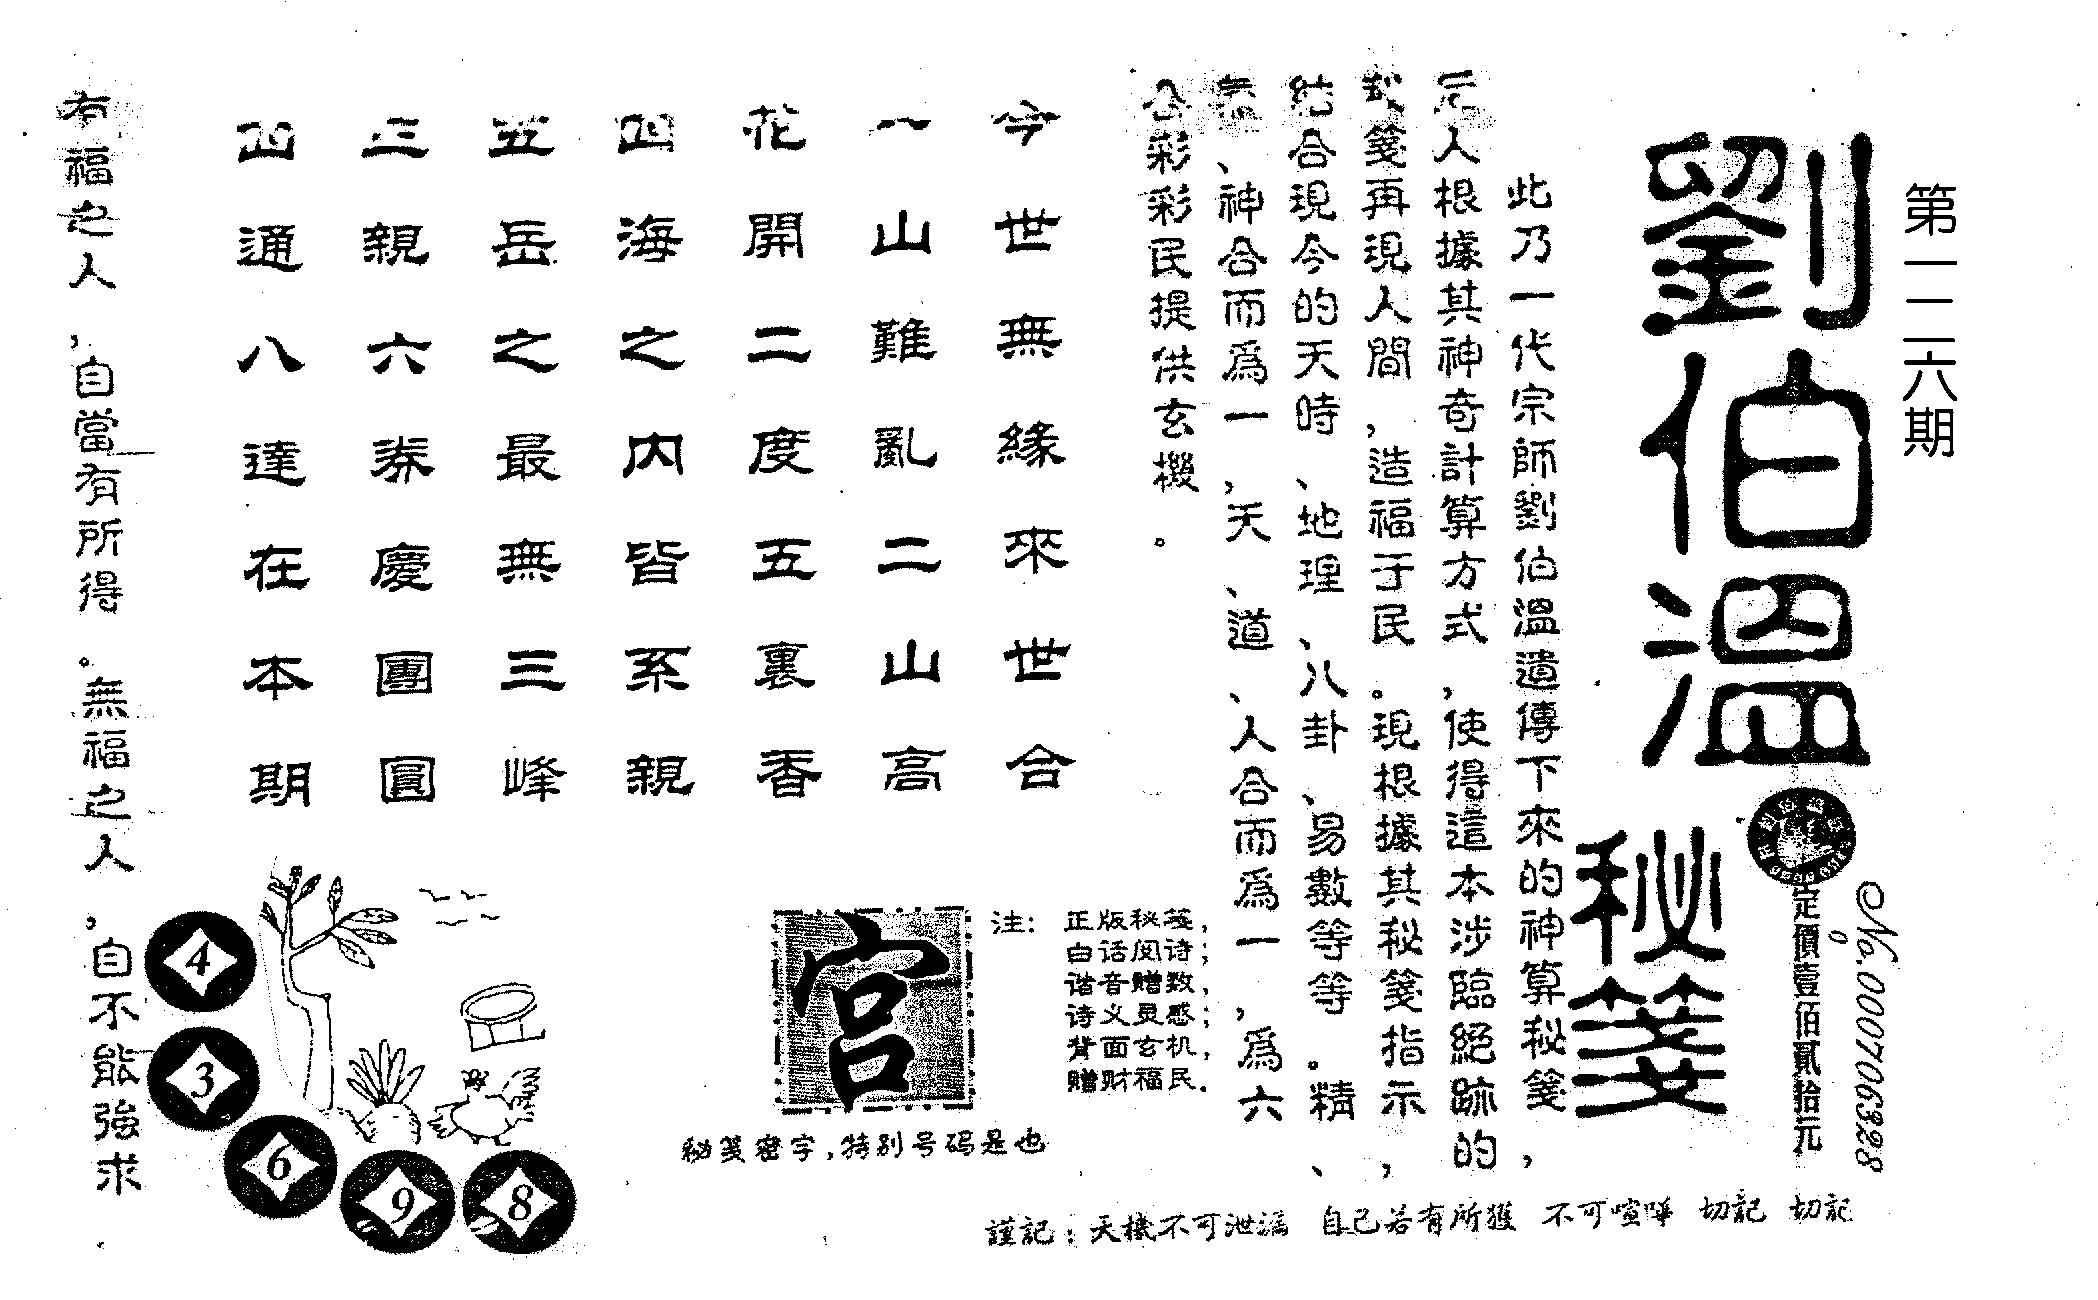 第一二六期
劉伯溫
秘箋
定價壹佰貳拾元
No.000706328
此乃一代宗師劉伯溫遺傳下來的神算秘箋，
后人根據其神奇計算方式，使得這本涉臨絕跡的
秘箋再現人間，造福于民。現根據其秘箋指示，
結合現今的天時、地理、八卦、易數等等。精、
氣、神合而爲一，天、道、人合而爲一，爲六
合彩彩民提供玄機。
今世無緣來世合
一山難亂二山高
花開二度五裏香
四海之內皆系親
五岳之最無三峰
三親六券慶團圓
四通八達在本期
有福之人，自當有所得。無福之人，自不能強求
注：
正版秘笺，
白话阅诗；
谐音赠数，
诗义灵感；
背面玄机，
赠财福民。
宫
秘笺密字，特别号码是也
4
3
6
9
8
謹記：天機不可泄漏 自己若有所獲 不可喧嘩 切記 切記